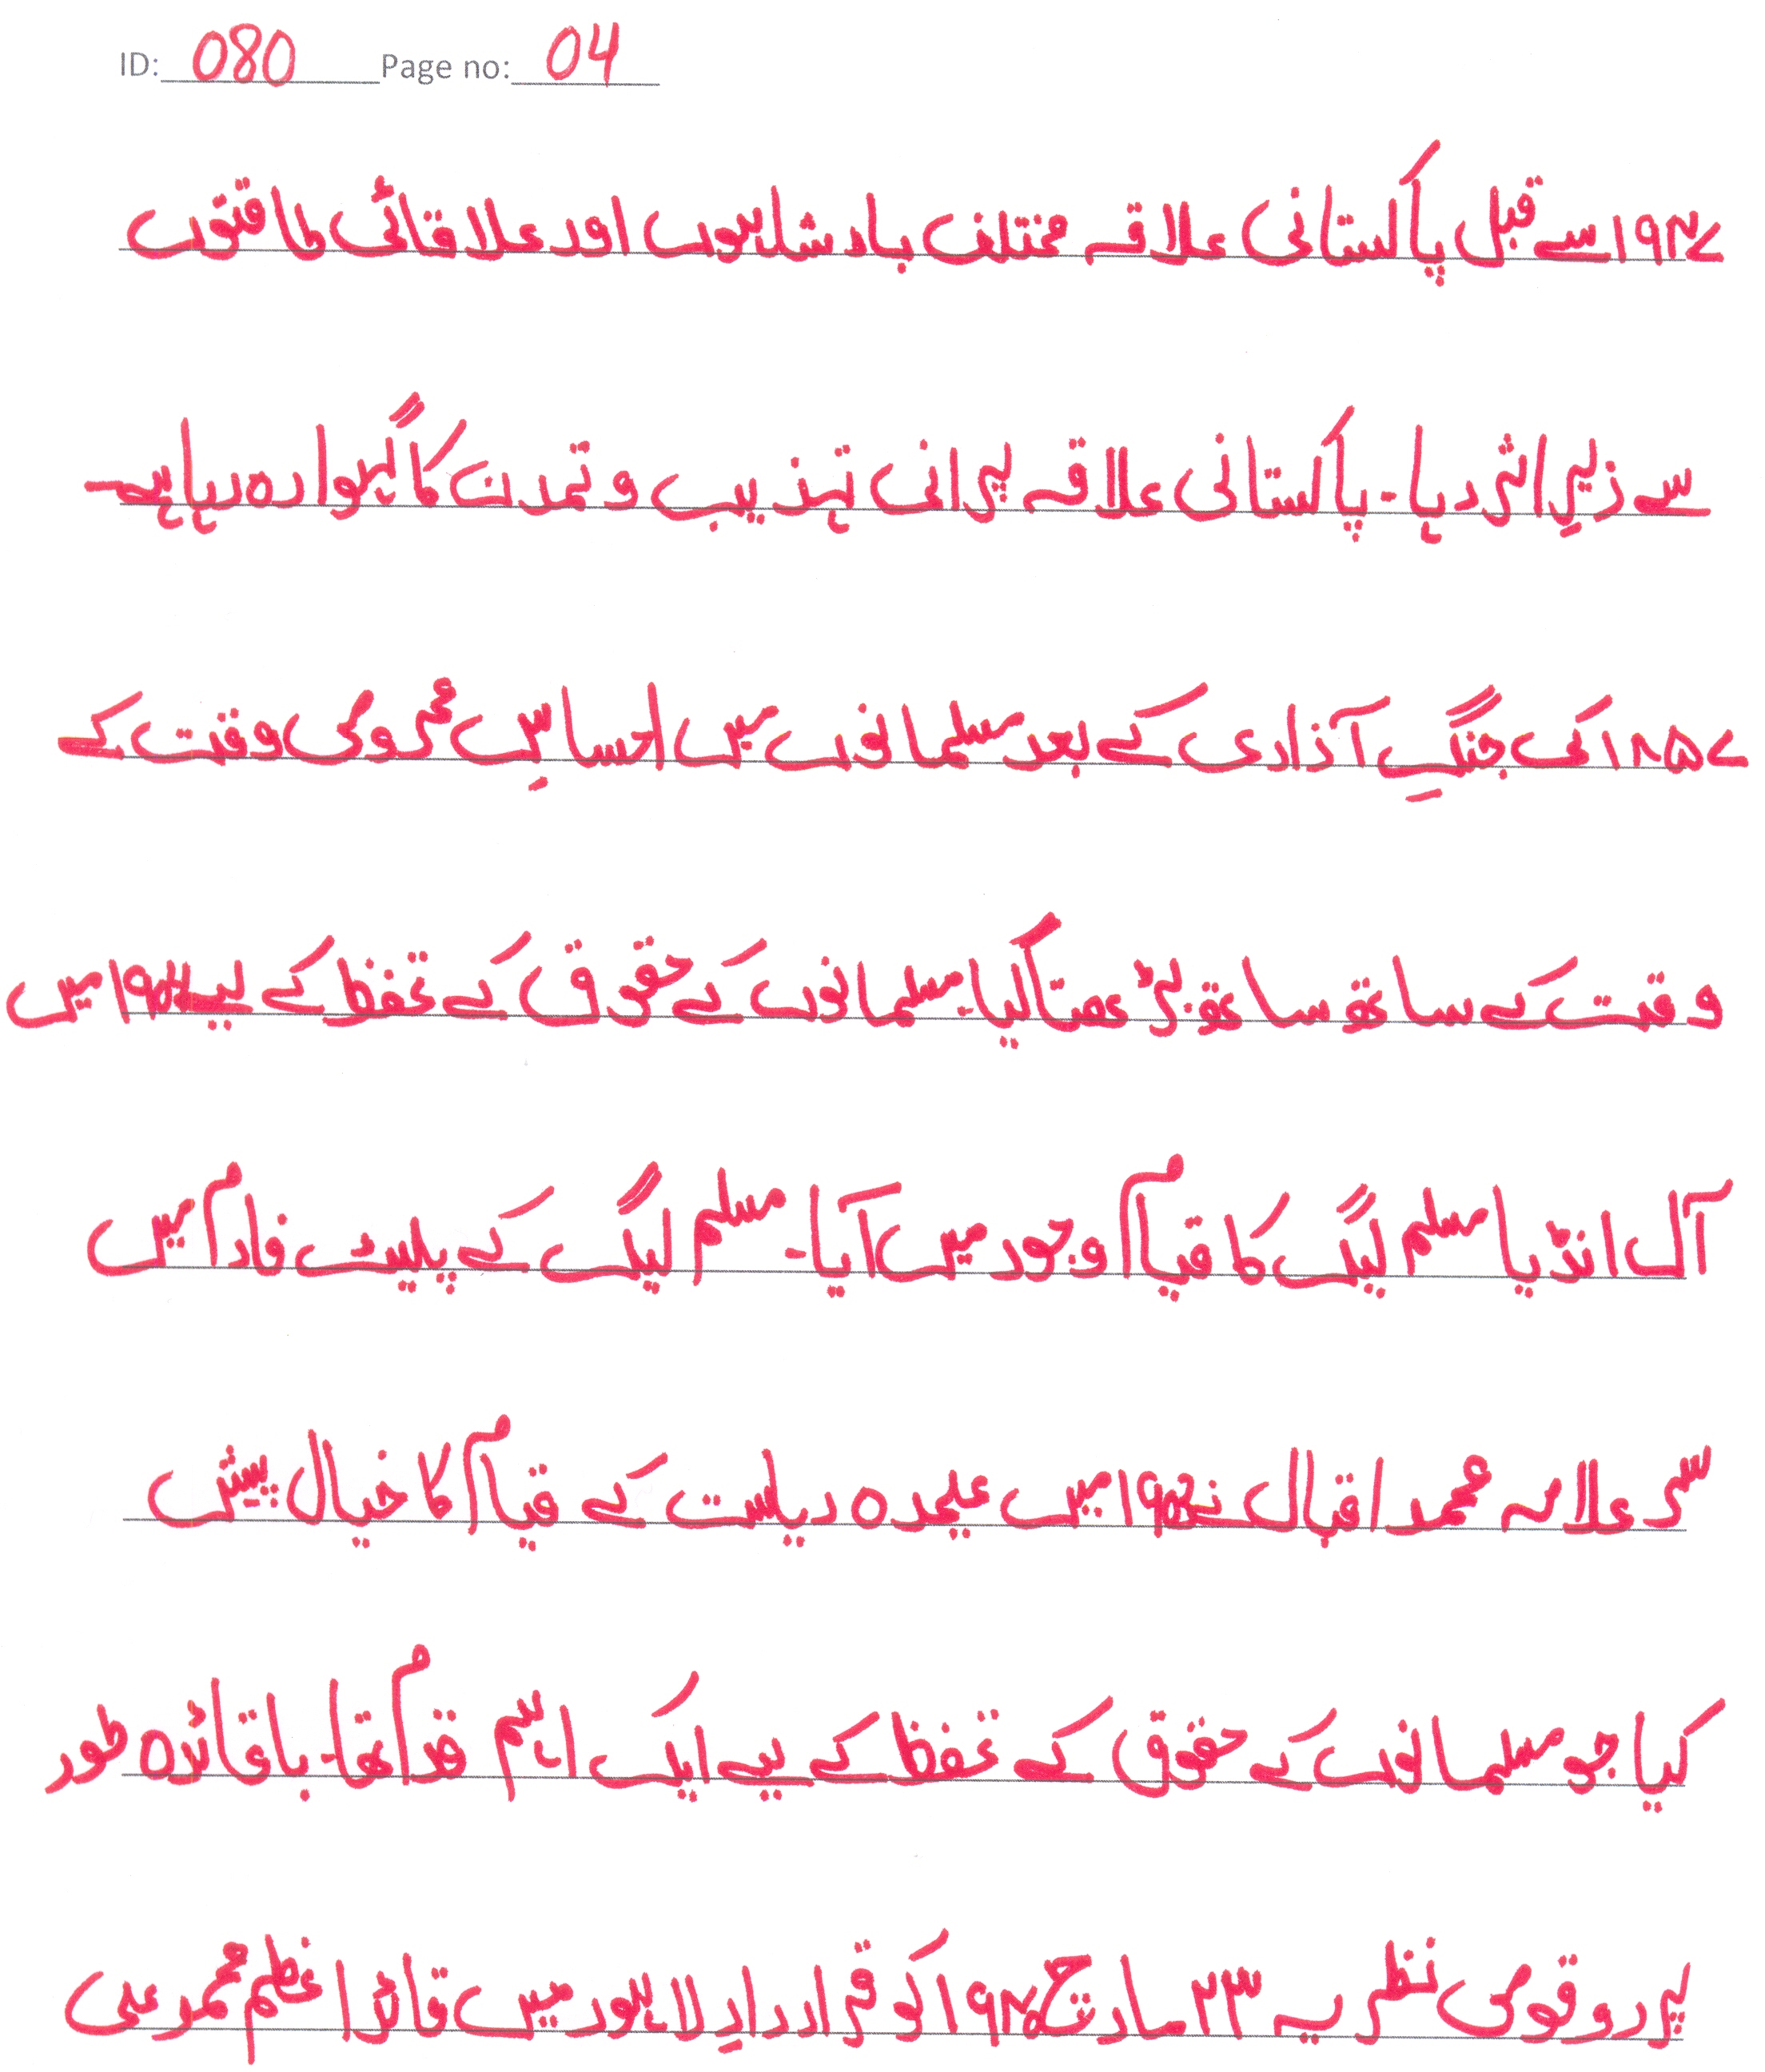 ID: 080 Page no: 04
۱۹۴۷ سے قبل پاکستانی علاقے مختلف بادشاہوں اور علاقائی طاقتوں
سے زیرِ اثر رہا۔ پاکستانی علاقے پرانی تہذیب و تمدن کا گہوارہ رہا ہے۔
۱۸۵۷ کی جنگِ آزادی کے بعد مسلمانوں میں احساسِ محرومی وقت کے
وقت کے ساتھ ساتھ بڑھتا گیا۔ مسلمانوں کے حقوق کے تحفظ کے لیے میں
آل انڈیا مسلم لیگ کا قیام وجود میں آیا۔ مسلم لیگ کے پلیٹ فارم میں
سر علامہ محمد اقبال نے میں علیحدہ ریاست کے قیام کا خیال پیش
کیا جو مسلمانوں کے حقوق کے تحفظ کے لیے ایک اہم قدم تھا۔ باقائدہ طور
پر دو قومی نظریہ ۲۳ مارچ ۱۹۴۰ کو قراردادِ لاہور میں قائد اعظم محمد علی